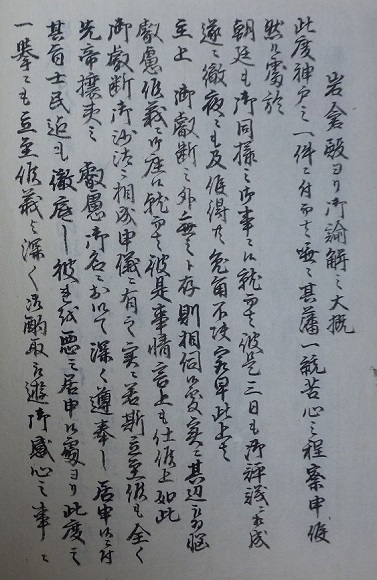 岩倉殿ヨリ御諭解之大概
此度神戸之一件ニ付而者唉々其藩一統苦心之程察申候
然ル處於
朝廷も御同様之御事ニ而就而者彼是三日も御評議ニ相成
遂ニ徹夜ニも及候得共兎角不決最早此上者
主上 御叡断之外無之ト存則相伺候處実ニ其辺被為悩
叡慮候義ニ御座候就而者彼是事情言上も仕候上如此
御叡断御沙汰ニ相成申儀ニ有之実ニ若斯立至候も全く
先帝攘夷之 叡慮御名ニおゐて深く遵奉し居申候付
其旨士民迄も徹底し彼を絨悪之居申候處ヨリ此度之
一挙ニも立至候義と深く御酌取被遊御感心之事ニ